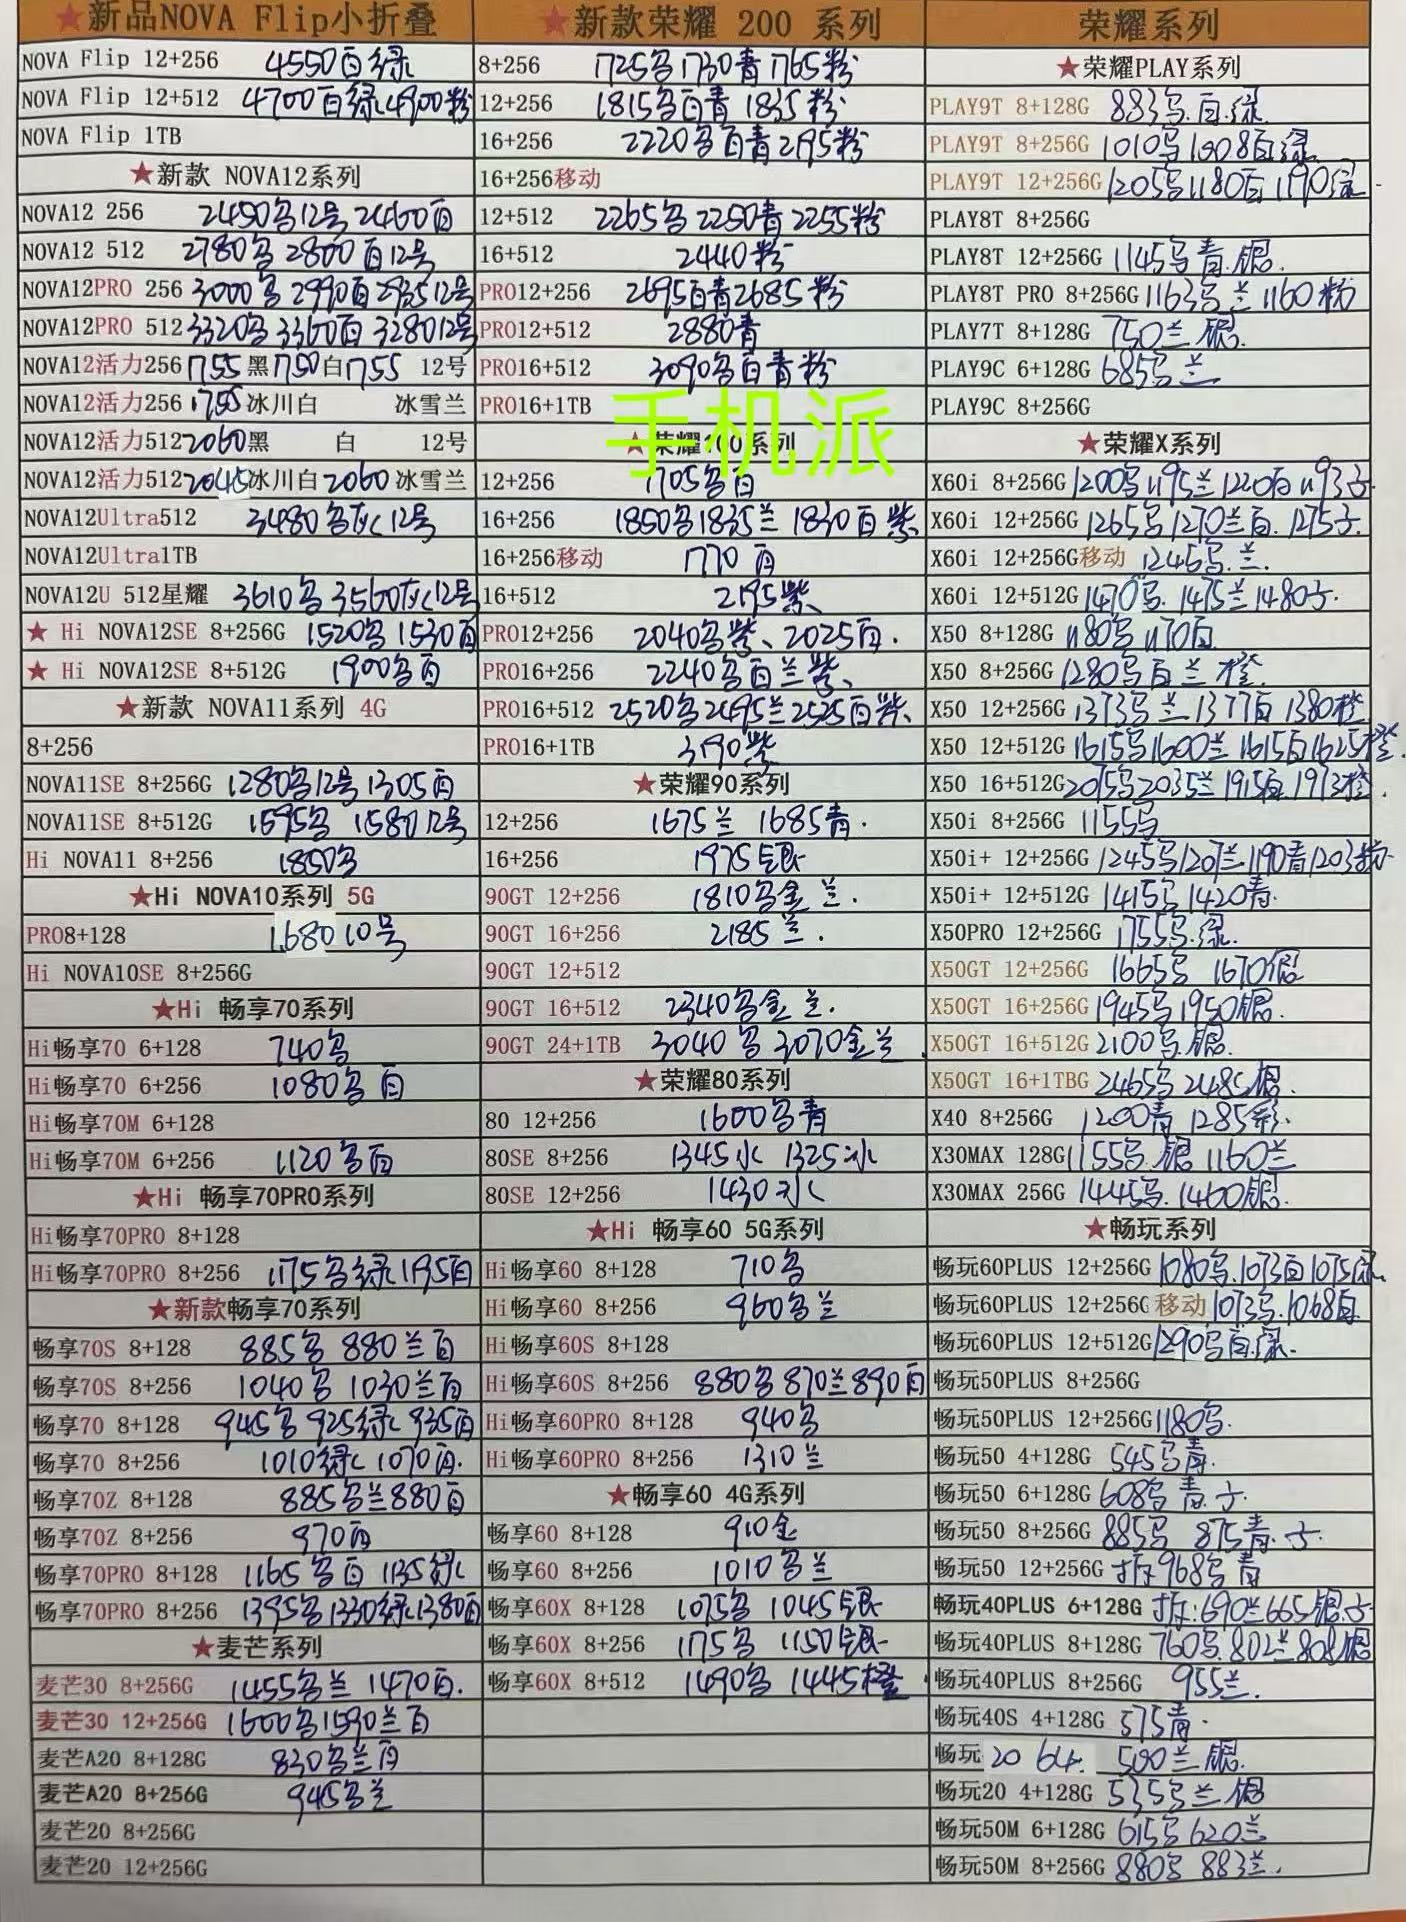 ★新品NOVA Flip小折叠
NOVA Flip 12+256 4550白绿
NOVA Flip 12+512 4700白绿4900粉
NOVA Flip 1TB
★新款 NOVA12系列
NOVA12 256 2450 12号 2460白
NOVA12 512 2780 2800白12号
NOVA12PRO 256 3000 2990白 12号
NOVA12PRO 512 3320 白 3280 12号
NOVA12活力256 1755黑1750白1755 12号
NOVA12活力256 1755冰川白 冰雪兰
NOVA12活力512 2060黑 白 12号
NOVA12活力512 2045冰川白2060 冰雪兰
NOVA12Ultra512 3480 灰12号
NOVA12Ultra1TB
NOVA12U 512星耀 3610 3560灰12号
★ Hi NOVA12SE 8+256G 1520 1530白
★ Hi NOVA12SE 8+512G 1900 白
★新款 NOVA11系列 4G
8+256
NOVA11SE 8+256G 1280 12号 1305白
NOVA11SE 8+512G 1595 1580 12号
Hi NOVA11 8+256 1850
★Hi NOVA10系列 5G
PRO8+128 1680 10号
Hi NOVA10SE 8+256G
★Hi 畅享70系列
Hi畅享70 6+128 740
Hi畅享70 6+256 1080 白
Hi畅享70M 6+128
Hi畅享70M 6+256 1120 白
★Hi 畅享70PRO系列
Hi畅享70PRO 8+128
Hi畅享70PRO 8+256 1175 绿1195白
★新款畅享70系列
畅享70S 8+128 885 880兰白
畅享70S 8+256 1040 1030兰白
畅享70 8+128 945 925绿 935白
畅享70 8+256 1010绿 1070白
畅享70Z 8+128 885 兰880白
畅享70Z 8+256 970白
畅享70PRO 8+128 1165 白 1135绿
畅享70PRO 8+256 1395 1330绿1380白
★麦芒系列
麦芒30 8+256G 1455 兰 1470白
麦芒30 12+256G 1600 1590兰白
麦芒A20 8+128G 830 兰白
麦芒A20 8+256G 945 兰
麦芒20 8+256G
麦芒20 12+256G
★新款荣耀 200 系列
8+256 1725 1730青1765粉
12+256 1815 白青 1835粉
16+256 2220 白青2195粉
16+256移动
12+512 2265 2250青2255粉
16+512 2440粉
PRO12+256 2695白青2685粉
PRO12+512 2880青
PRO16+512 3090 白青粉
PRO16+1TB
手机派
★荣耀100系列
12+256 1705 白
16+256 1850 1835兰 1830白紫
16+256移动 1770 白
16+512 2195紫
PRO12+256 2040 紫、2025白.
PRO16+256 2240 白兰紫
PRO16+512 2520 2495兰2525白紫
PRO16+1TB 3190紫
★荣耀90系列
12+256 1675兰 1685青.
16+256 1975银
90GT 12+256 1810 金兰.
90GT 16+256 2185兰.
90GT 12+512
90GT 16+512 2340 金兰.
90GT 24+1TB 3040 3070金兰
★荣耀80系列
80 12+256 1600 青
80SE 8+256 1345水 1325冰
80SE 12+256 1430水
★Hi 畅享60 5G系列
Hi畅享60 8+128 710
Hi畅享60 8+256 960 兰
Hi畅享60S 8+128
Hi畅享60S 8+256 880 870兰890白
Hi畅享60PRO 8+128 940
Hi畅享60PRO 8+256 1310兰
★畅享60 4G系列
畅享60 8+128 910金
畅享60 8+256 1010 兰
畅享60X 8+128 1075 1045银
畅享60X 8+256 1175 1150银
畅享60X 8+512 1490 1445橙
荣耀系列
★荣耀PLAY系列
PLAY9T 8+128G 883 白.绿
PLAY9T 8+256G 1010 1008白绿
PLAY9T 12+256G 1205 1180白 1190绿
PLAY8T 8+256G
PLAY8T 12+256G 1145 青.银.
PLAY8T PRO 8+256G 1163 兰 1160粉
PLAY7T 8+128G 750兰 银.
PLAY9C 6+128G 685 兰
PLAY9C 8+256G
★荣耀X系列
X60i 8+256G 1200 1195兰1220白1193
X60i 12+256G 1265 1270兰白.1275
X60i 12+256G移动 1245 .兰.
X60i 12+512G 1470 . 1475兰1480
X50 8+128G 1180 1170白
X50 8+256G 1280 白兰 橙.
X50 12+256G 1373 兰 1377白 1380橙
X50 12+512G 1615 1600兰 1615白1625橙
X50 16+512G 2075 2035兰 1915白.1913橙.
X50i 8+256G 1155
X50i+ 12+256G 1245 1207兰1190青1203粉
X50i+ 12+512G 1415 1420青.
X50PRO 12+256G 1755 .绿.
X50GT 12+256G 1665 1670银
X50GT 16+256G 1945 1950银.
X50GT 16+512G 2100 .银.
X50GT 16+1TBG 2465 2485银.
X40 8+256G 1200青 1285彩.
X30MAX 128G 1155 .银 1160兰
X30MAX 256G 1445 .1460银.
★畅玩系列
畅玩60PLUS 12+256G 1080 .1073白1075绿
畅玩60PLUS 12+256G 移动 1073 .1068白
畅玩60PLUS 12+512G 1290 白.绿.
畅玩50PLUS 8+256G
畅玩50PLUS 12+256G 1180 .
畅玩50 4+128G 545 青.
畅玩50 6+128G 608 青.
畅玩50 8+256G 885 875青.
畅玩50 12+256G 拆968 青
畅玩40PLUS 6+128G 拆:690兰665银.
畅玩40PLUS 8+128G 760 .802兰808银
畅玩40PLUS 8+256G 955兰.
畅玩40S 4+128G 575青.
畅玩 20 64. 500兰.银.
畅玩20 4+128G 535 兰 银
畅玩50M 6+128G 615 620兰
畅玩50M 8+256G 880 883兰.